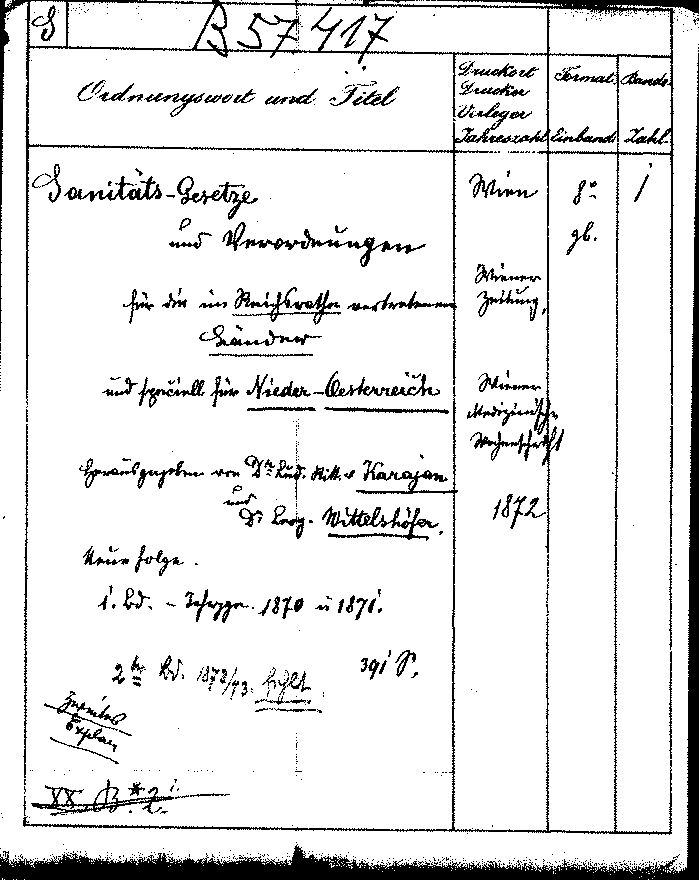 S
B 57417
Ordnungswort und Titel
Druckort
Drucker
Verleger
Jahreszahl
Format
Einband
Bände-
Zahl
Sanitäts-Gesetze
und Verordnungen
für die im Reichsrathe vertretenen
Länder
und speciell für Nieder-Oesterreich
herausgegeben von Dr. Lud. Ritt. v Karajan
und
Dr Leop. Wittelshöfer.
Neue Folge.
1. Bd. - Jahrgge. 1870 u 1871.
391 S.
2ter Bd. 1872/73. fehlt
Zweites
Explar
XX. B.* 2.
Wien
Wiener
Zeitung,
Wiener
Medizinische
Wochenschrift
1872
8o
gb.
1